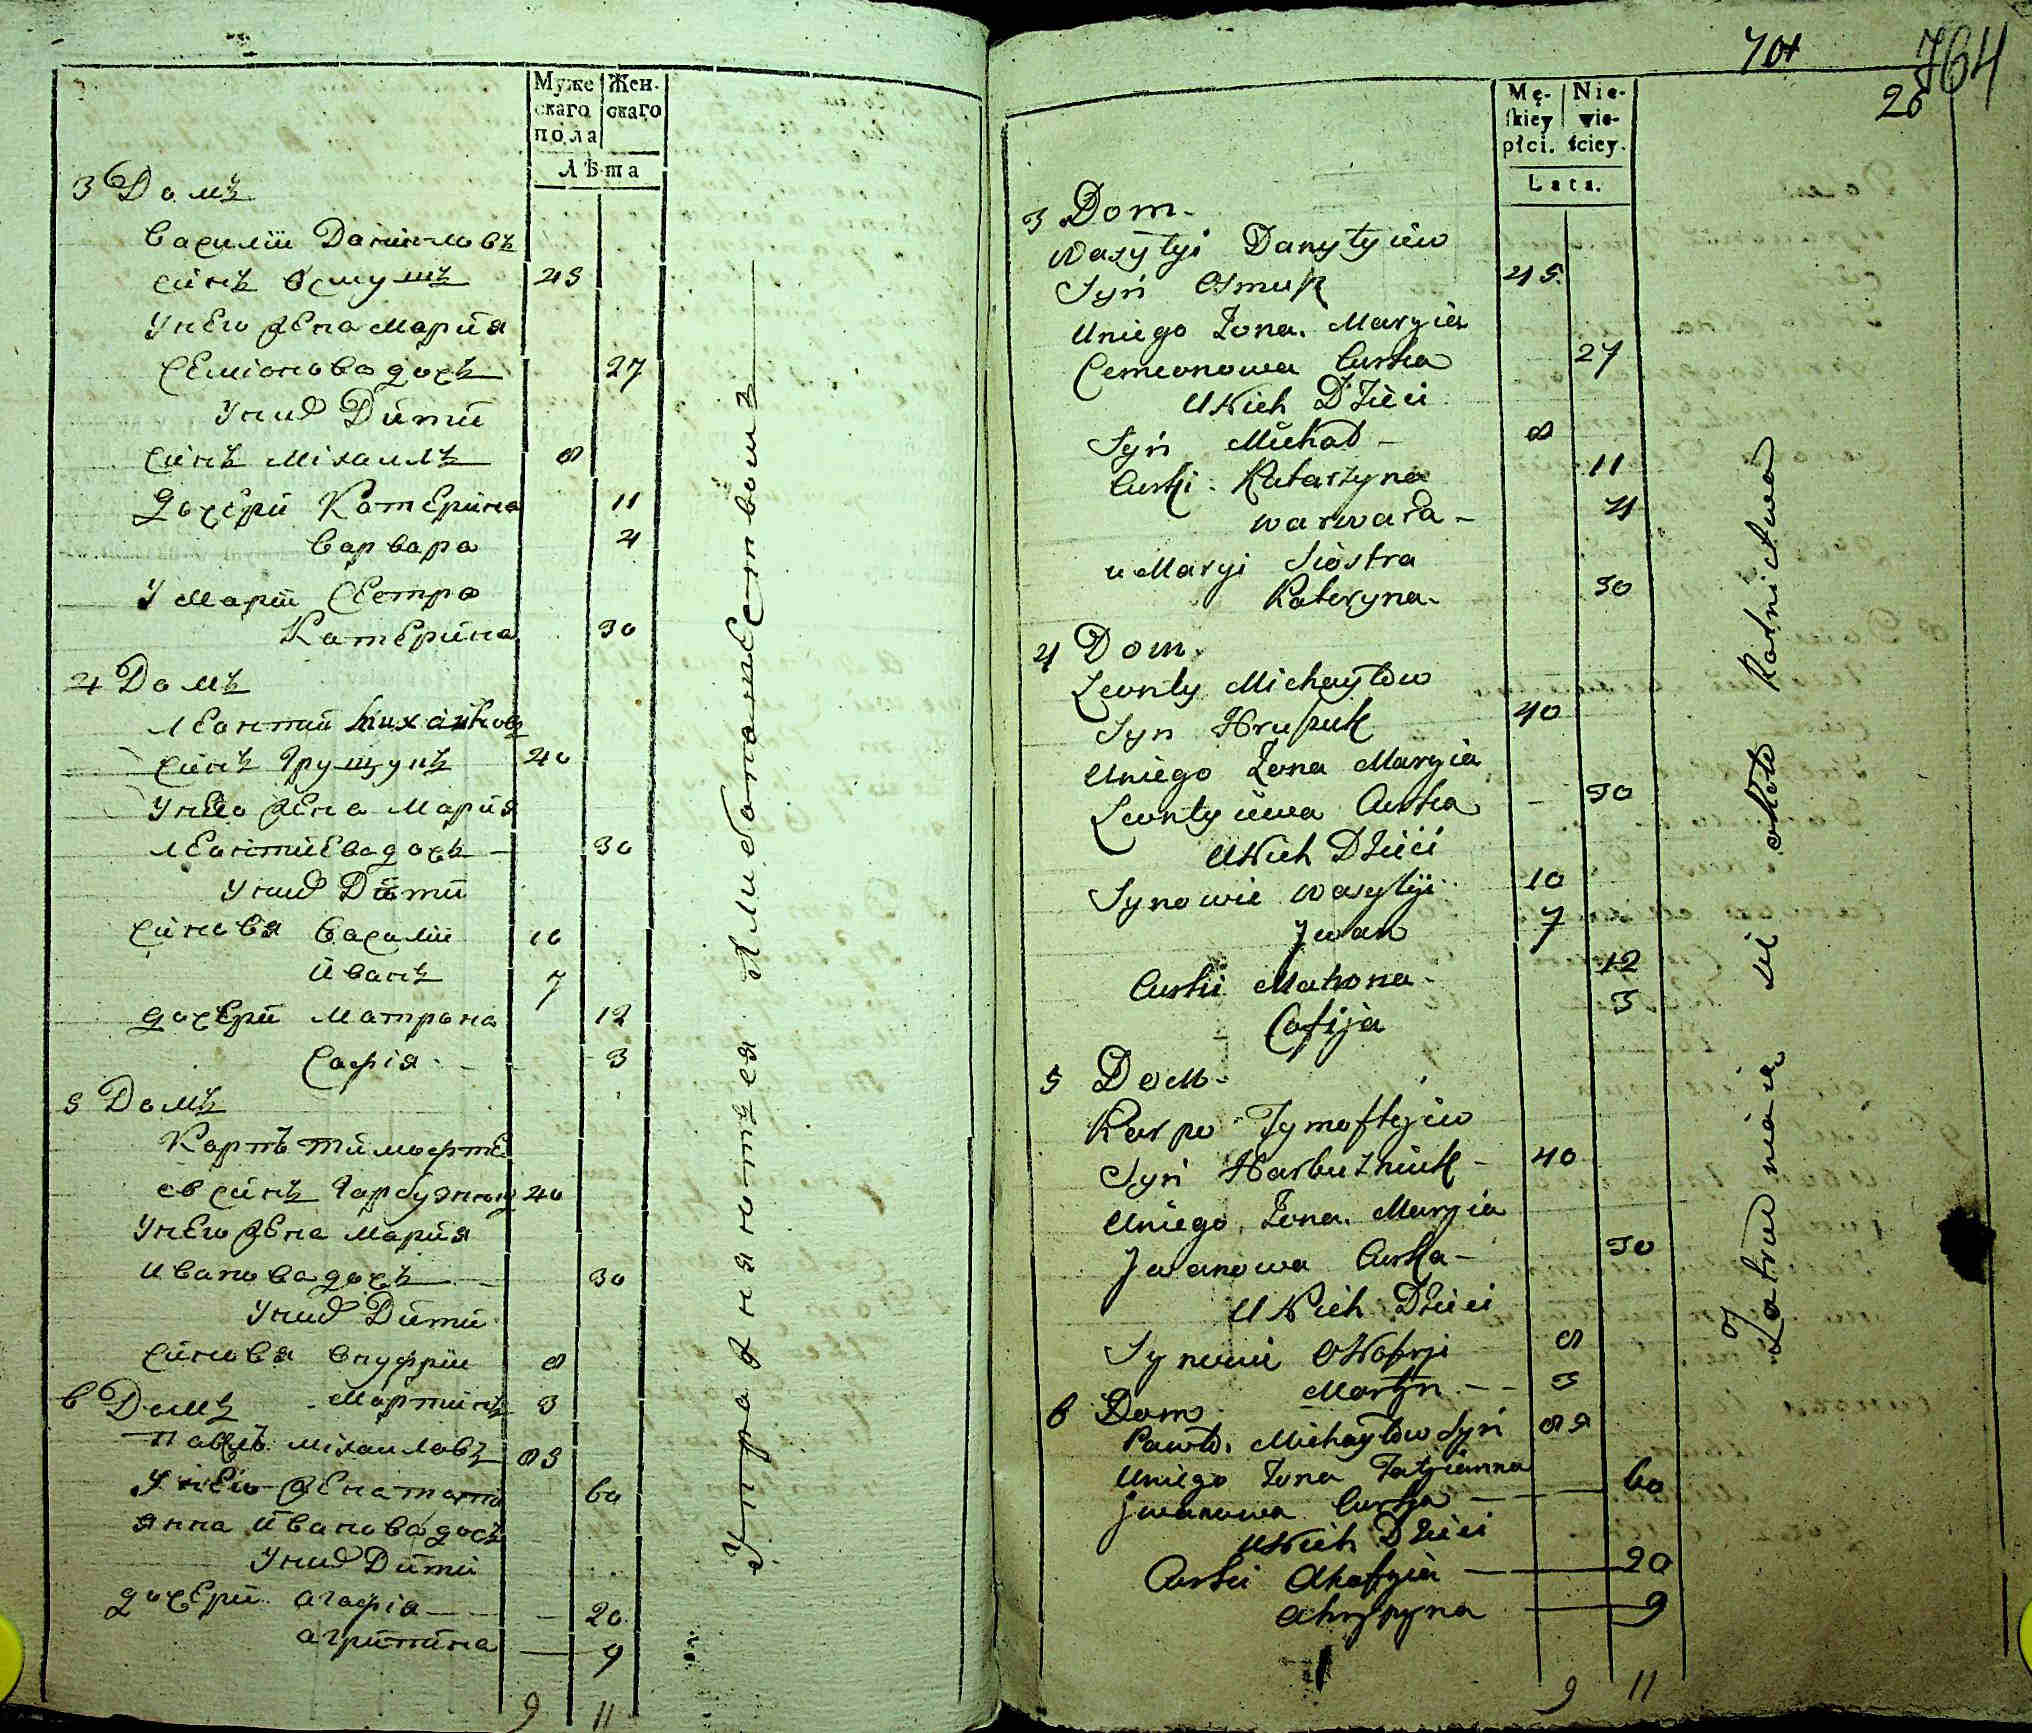 Муже Жен-
скаго скаго
пола
Лѣта
3 Домъ
Василій Даниловъ
синъ Осмукъ 45
У него жена Мария
Семіонова дочъ 27
У них Дити
Синъ Міхаилъ 8
Дочери Катерина 11
Варвара 4
У Маріи Сестра
Катерина 30
4 Домъ
Леонтий Михайлов
синъ Грущукъ 40
У него жена Мария
Леонтиева дочъ 30
У них Дити
Синовя Василій 10
Иванъ 7
Дочери Матрона 12
Софія 3
5 Домъ
Карпъ Тимофте
ев синъ Гарбузнюк 40
У него жена Мария
Иванова дочъ 30
У них Дити
Синовя Онуфрій 8
Мартинъ 3
6 Домъ
Павелъ Міхаиловъ 85
У него жена Тати
янна Иванова дочъ 60
У них Дити
Дочери Агафія 20
Агрипина 9
9 11
Упражняются Хлебопашествомъ
704
764
26
Mę- Nie-
skiey wie-
płci. ściey.
Lata.
3 Dom
Wasylyi Danyłyiew
Syn Osmuk 45
Uniego Żona Maryia
Cemeonowa Curka 27
U Nich Dzieci
Syn Michał 8
Curki Katarzyna 11
Warwara 4
u Maryi Siostra
Kateryna 30
4 Dom
Leonty Michayłow
Syn Hruszuk 40
Uniego Żona Maryia
Leontyiewa Curka 30
U Nich Dzieci
Synowie Wasylyi 10
Jwan 7
Curki Matrona 12
Cofija 3
5 Dom
Karpo Tymofteiew
Syn Harbuzniuk 40
Uniego Żona Maryia
Jwanowa Curka 30
U Nich Dzieci
Synowie ONofryi 8
Martyn 3
6 Dom
Pawło Michayłow Syn 85
Uniego Żona Tatjanna 60
Jwanowa Curka
U Nich Dzieci
Curki Ahafyia 20
Ahrypyna 9
9 11
Zatrudniaią się około Rolnictwa